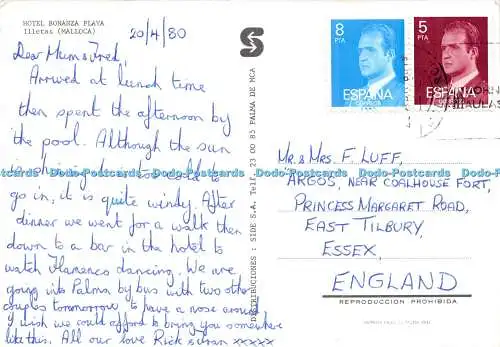 HOTEL BONANZA PLAYA
Illetas (MALLOCA)
20/4/80
Dear Mum & Fred,
Arrived at lunch time
then spent the afternoon by
the pool. Although the sun
is shining its too cold to
go in, it is quite windy. After
dinner we went for a walk then
down to a bar in the hotel to
watch Flamenco dancing. We are
going into Palma by bus with two other
couples tommorrow to have a nose around
I wish we could afford to bring you somewhere
like this. All our love Rick & Fran xxxxx
S
DISTRIBUCIONES : SIDE S.A. Tel. 23 00 85 PALMA DE MCA
8
PTA
ESPAÑA
CORREOS
5
PTA
ESPAÑA
CORREOS
MR. & MRS. F. LUFF,
ARGOS, NEAR COALHOUSE FORT,
PRINCESS MARGARET ROAD,
EAST TILBURY,
ESSEX,
ENGLAND
REPRODUCCION PROHIBIDA
www.the-postcard.co.uk